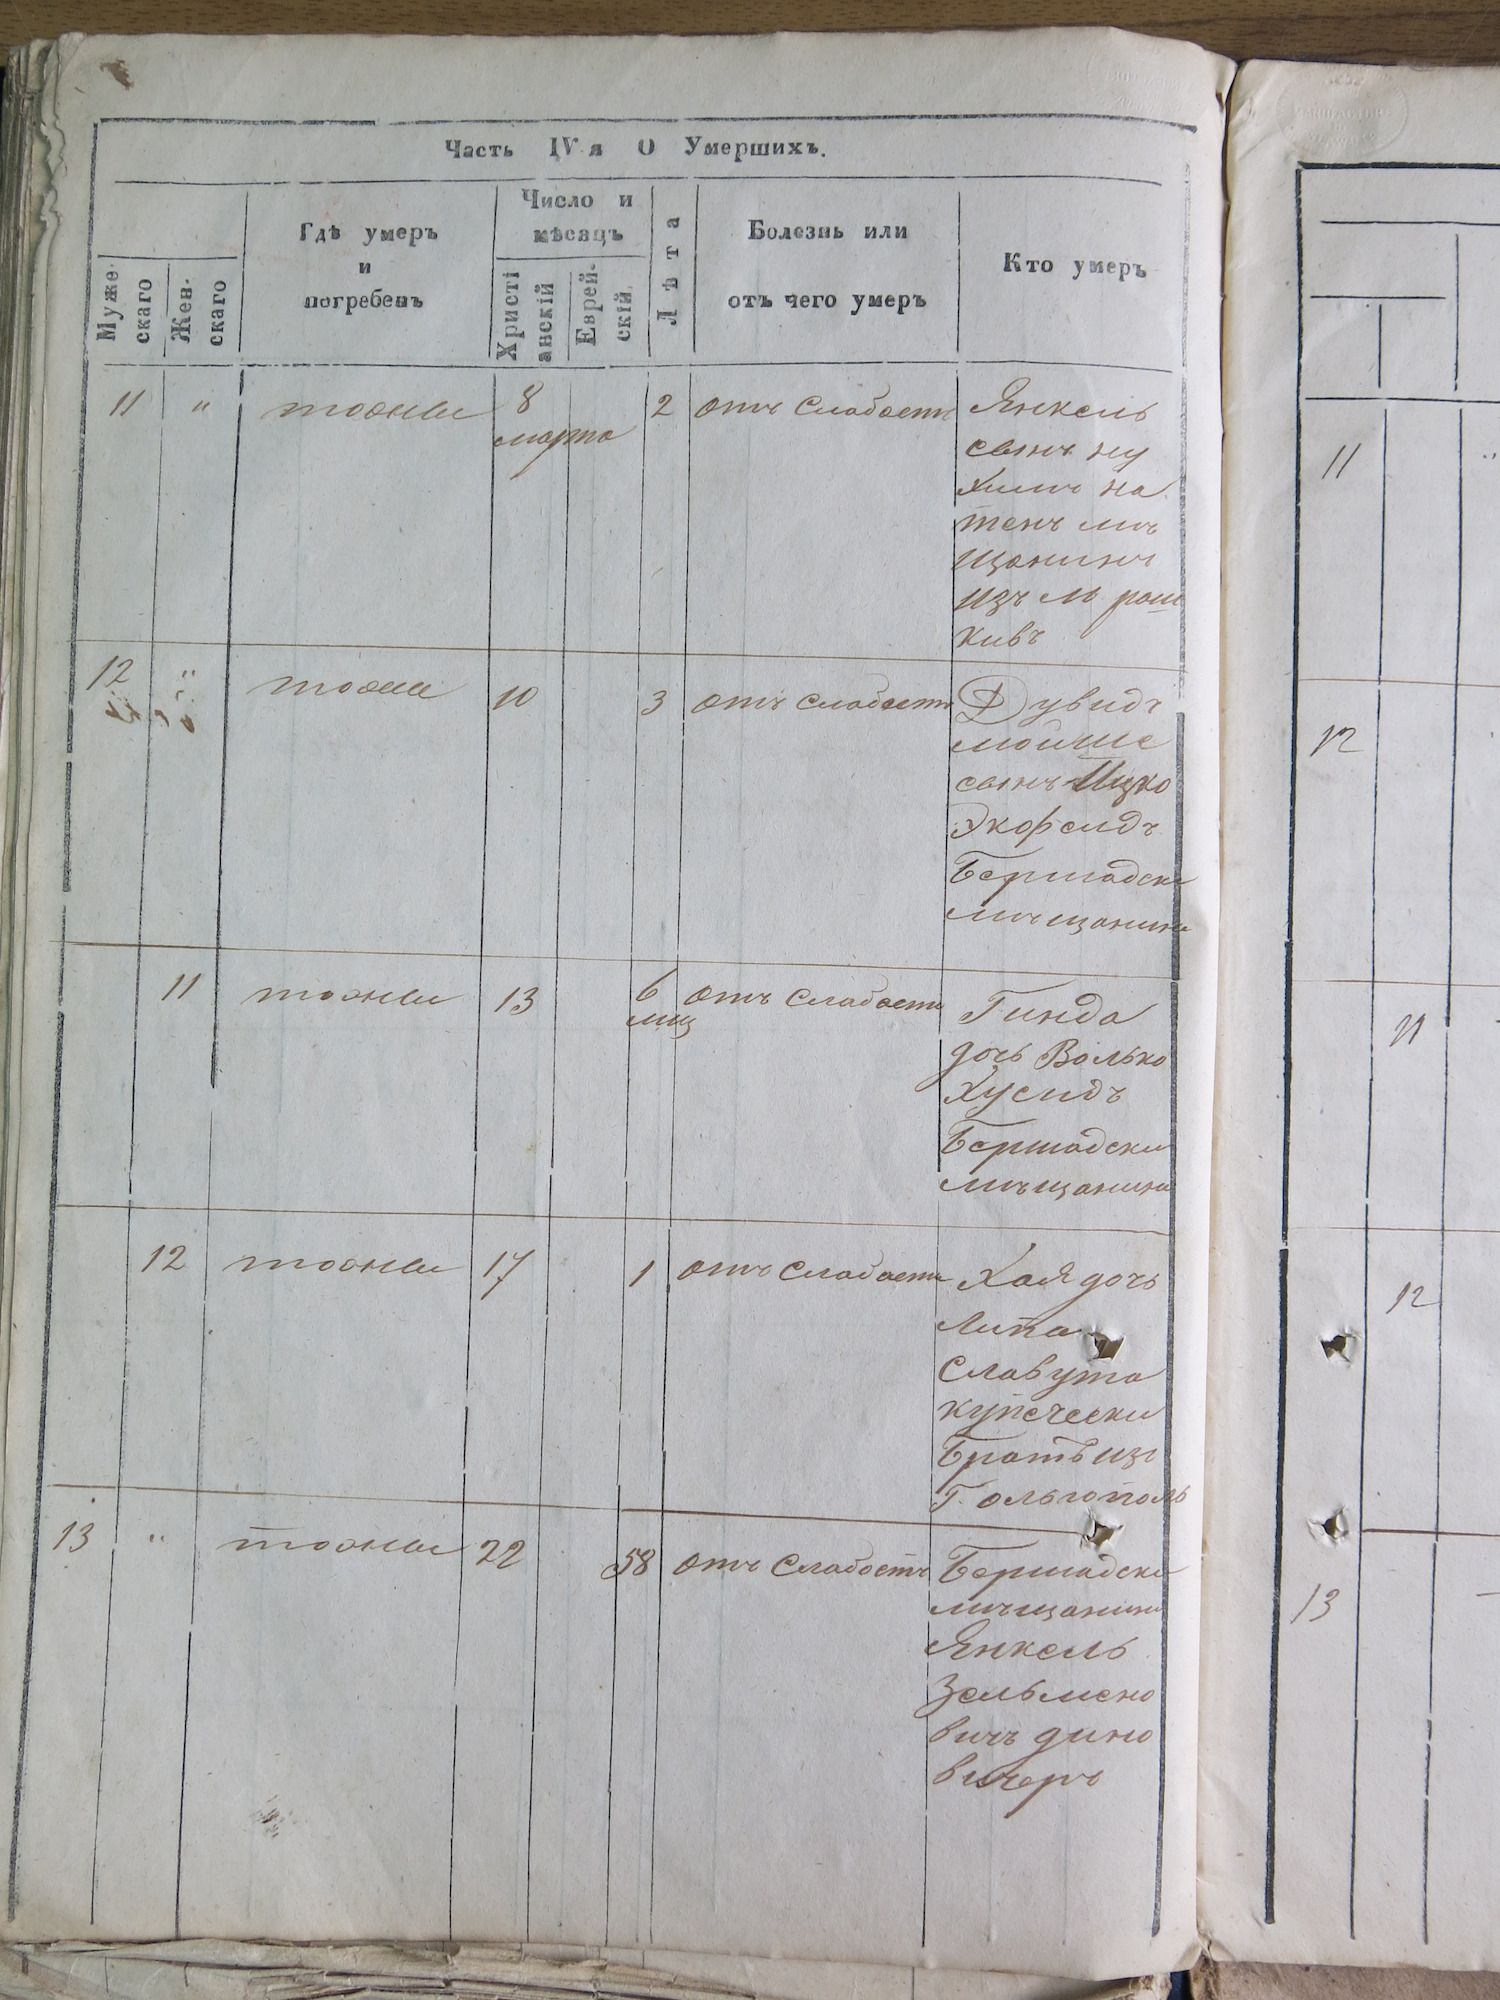 Часть IV я О Умершихъ.
Муже-
скаго
Жен-
скаго
Гдѣ умеръ
и
погребенъ
Число и
мѣсяцъ
Христі
анскій
Еврей-
скій
Лѣта
Болезнь или
отъ чего умеръ
Кто умеръ
11 " тожъ 8 2 отъ слабости Янкель
марта
сынъ ну
химъ на
тенъ мѣ
щанинъ
изъ м раш
кивъ
12 " 10 3 отъ слабости Дувидъ
мойше
сынъ Ицко
Экофелдъ
Бершадски
мѣщанинъ
11 13 6 отъ слабости Гинда
мц
дочь Волько
Хусидъ
Бершадски
мѣщанина
12 17 1 отъ слабости Хая дочь
Липа
Славута
купечески
братъ изъ
Г. ольгополь
13 " 22 58 отъ слабость Бершадски
мѣщанинъ
Янкель
Зельмено
вичъ дино
вицеръ
11 "
12
11
12
13